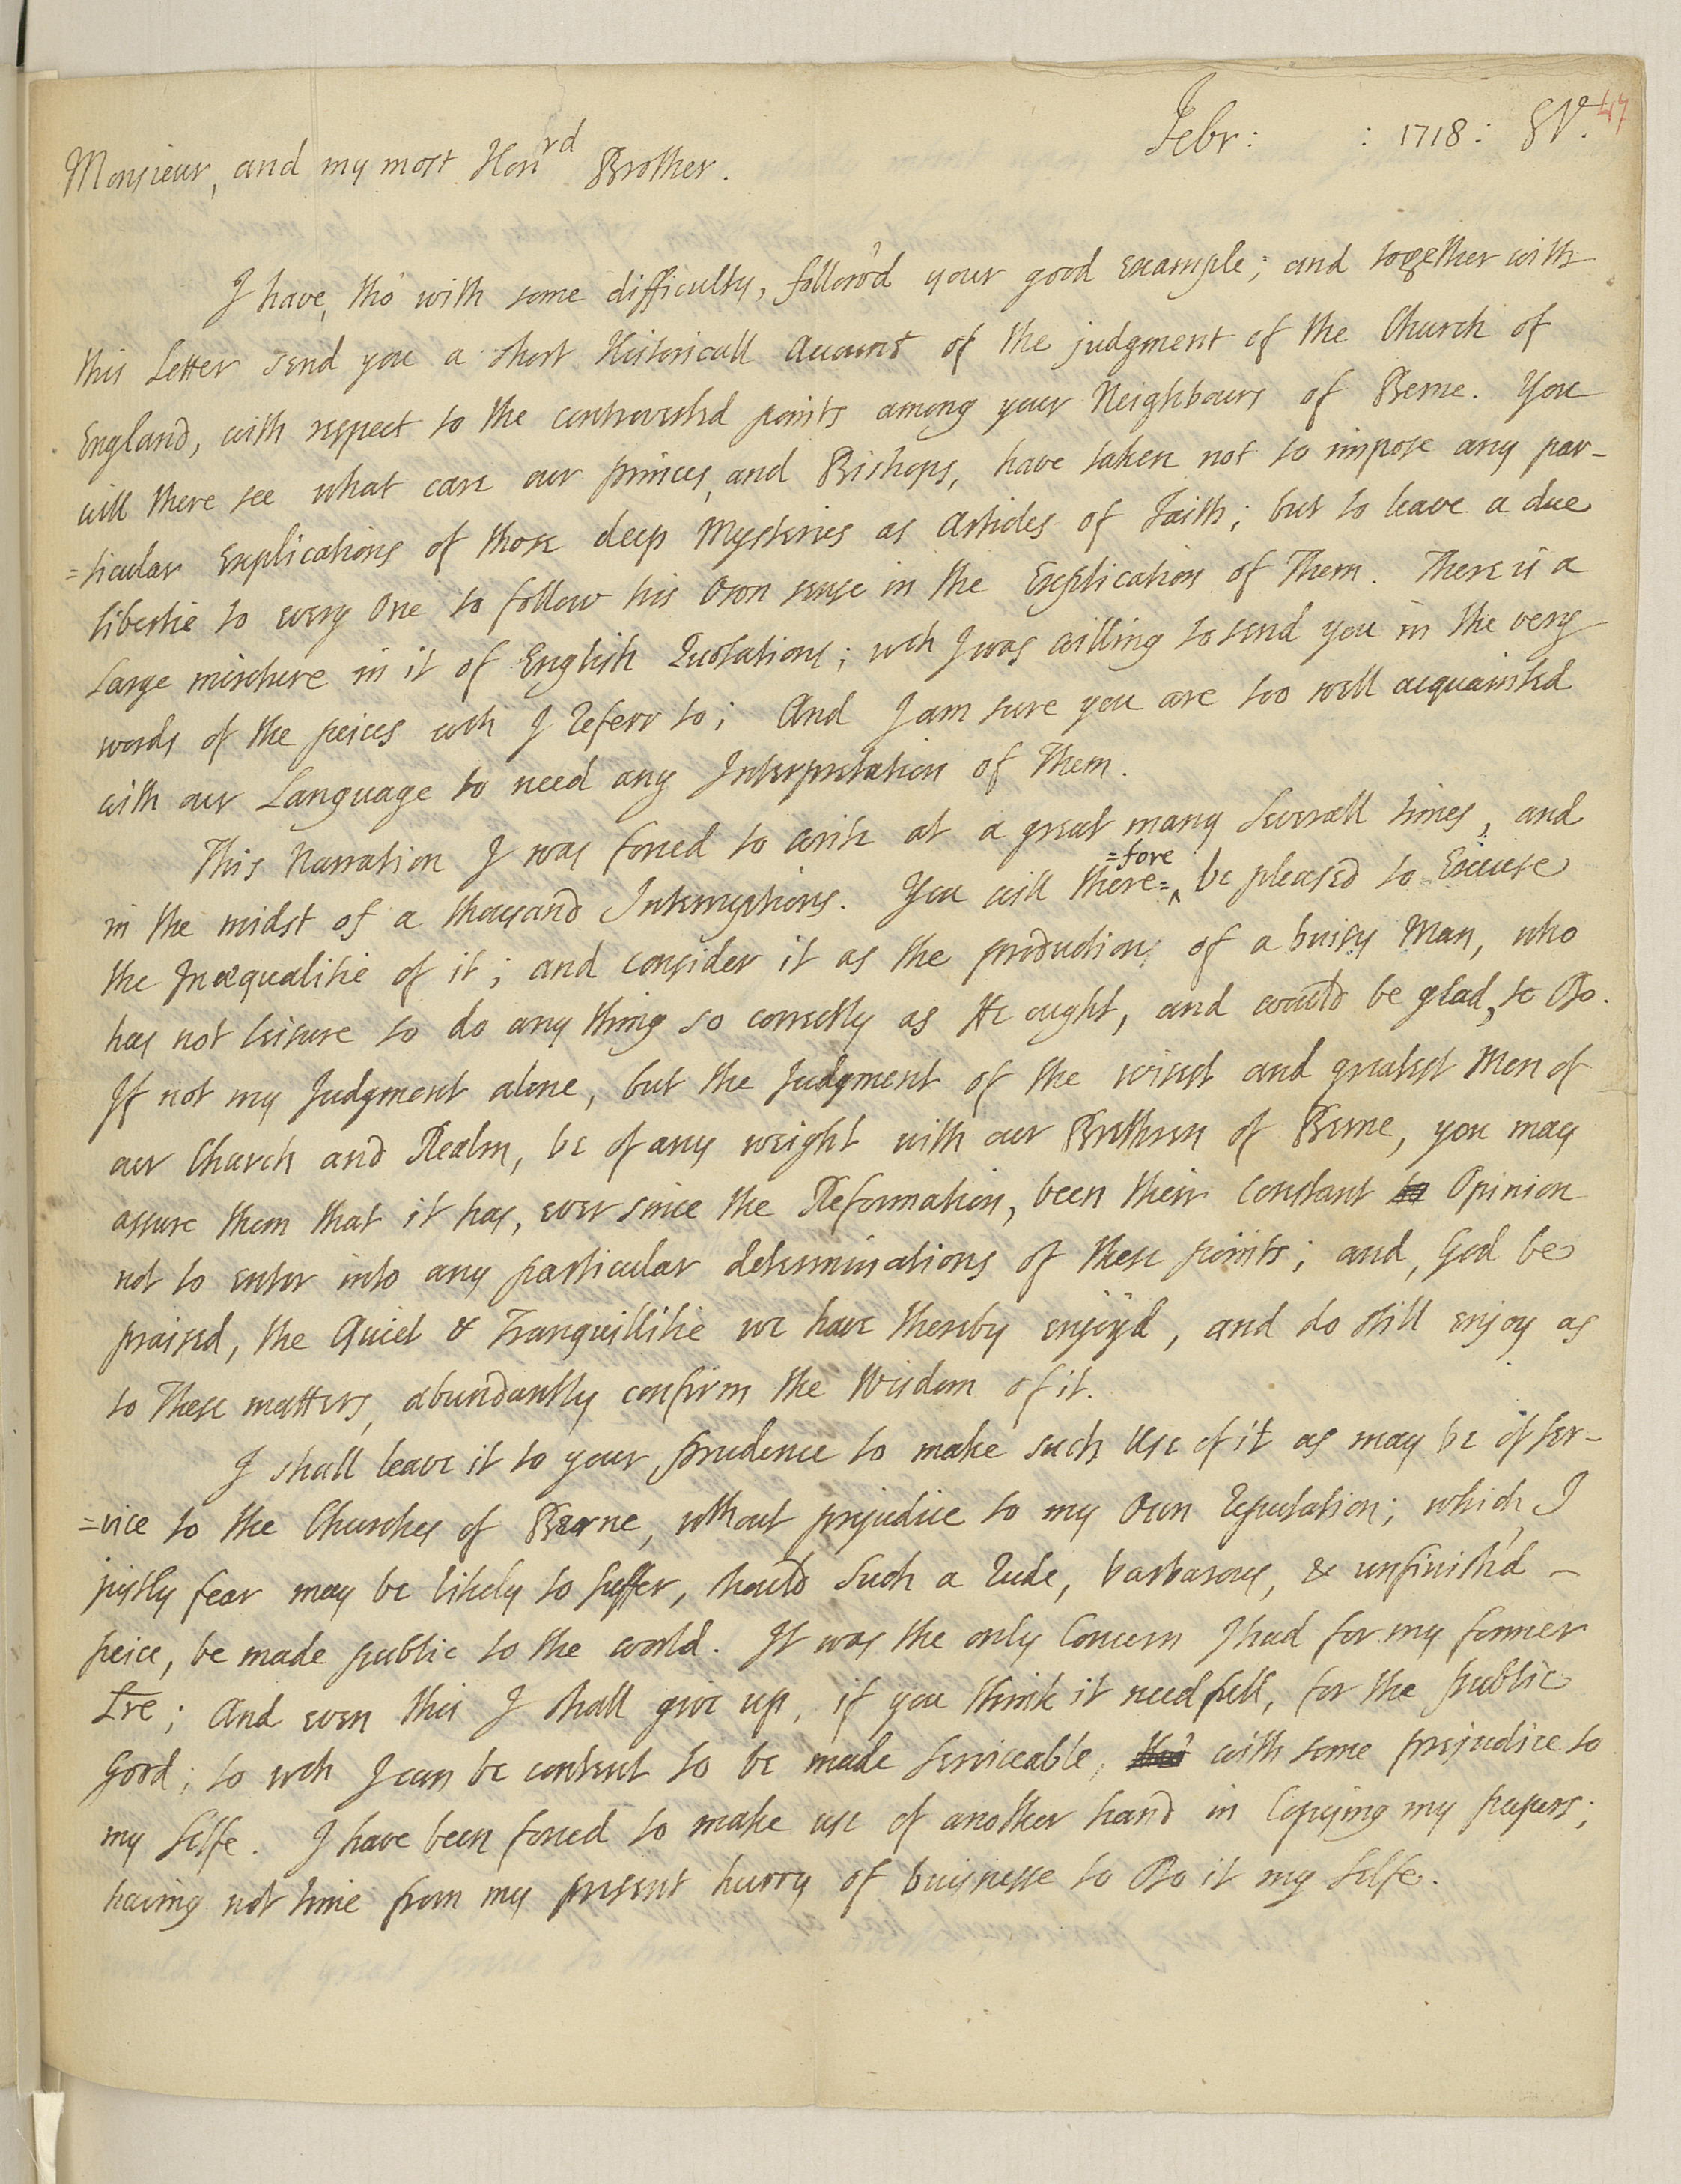 Febr: : 1718: SV. 47
Monsieur, and my most Honrd Brother.
I have, tho' with some difficulty, follow'd your good example; and together with
this Letter send you a short Historicall Account of the judgment of the Church of
England, with respect to the controverted points among your Neighbours of Berne. You
will there see what care our princes, and Bishops, have taken not to impose any par-
=ticular Explications of those deep Mysteries as Articles of Faith; but to leave a due
libertie to every One to follow his Own sense in the Explication of Them. There is a
Large mixture in it of English Quotations; wch I was willing to send you in the very
words of the peices wch I referr to; And I am sure you are too well acquainted
with our Language to need any Interpretation of Them.
This Narration I was forced to write at a great many severall times, and
in the midst of a thousand Interruptions. You will there= =fore be pleased to Excuse
the Inæqualitie of it; and consider it as the production of a buisy Man, who
has not leisure to do any thing so correctly as He ought, and would be glad, to Do.
If not my Judgment alone, but the Judgment of the wisest and greatest Men of
our Church and Realm, be of any weight with our Brethren of Berne, you may
assure them that it has, ever since the Reformation, been their constant to Opinion
not to enter into any particular determinations of these points; and, God be
praised, the Quiet & Tranquillitie we have thereby enjoy'd, and do still enjoy as
to These matters, abundantly confirm the Wisdom of it.
I shall leave it to your prudence to make such Use of it as may be of ser-
=vice to the Churches of Berne, wthout prejudice to my Own reputation; which, I
justly fear may be likely to suffer, should such a rude, barbarous, & unfinish'd -
peice, be made public to the world. It was the only Concern I had for my former
Lre; And even this I shall give up, if you think it needfull, for the public
Good; to wch I can be content to be made serviceable, tho' with some prejudice to
my selfe. I have been forced to make use of another hand in Copying my papers;
having not time from my present hurry of buisnesse to Do it my selfe.